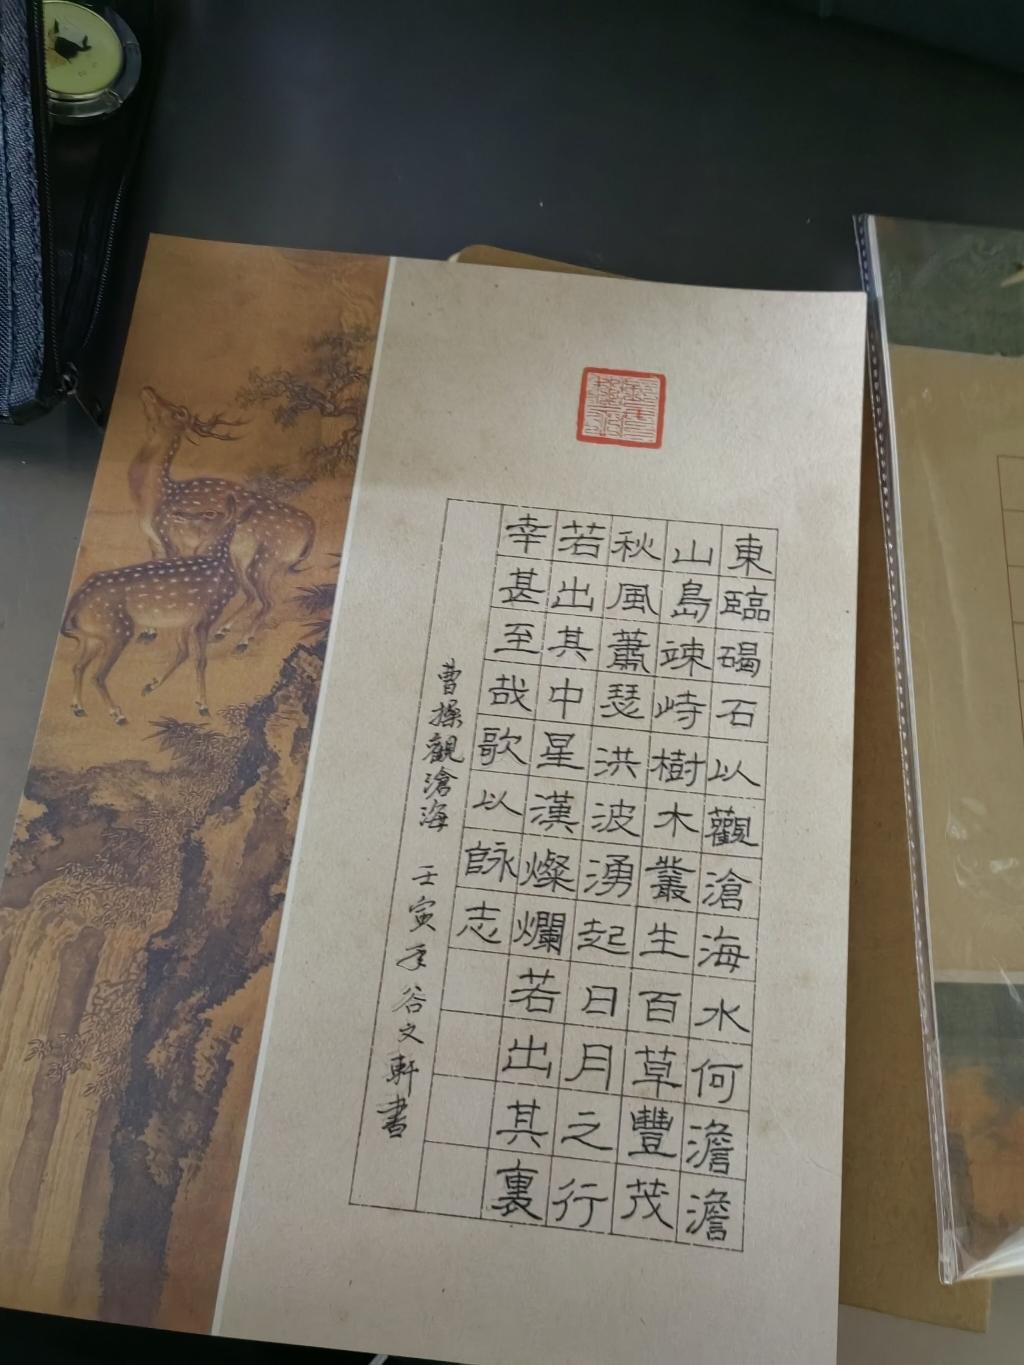 東臨碣石以觀滄海水何澹澹
山島竦峙樹木叢生百草豐茂
秋風蕭瑟洪波湧起日月之行
若出其中星漢燦爛若出其裏
幸甚至哉歌以詠志
曹操觀滄海 壬寅年谷文軒書